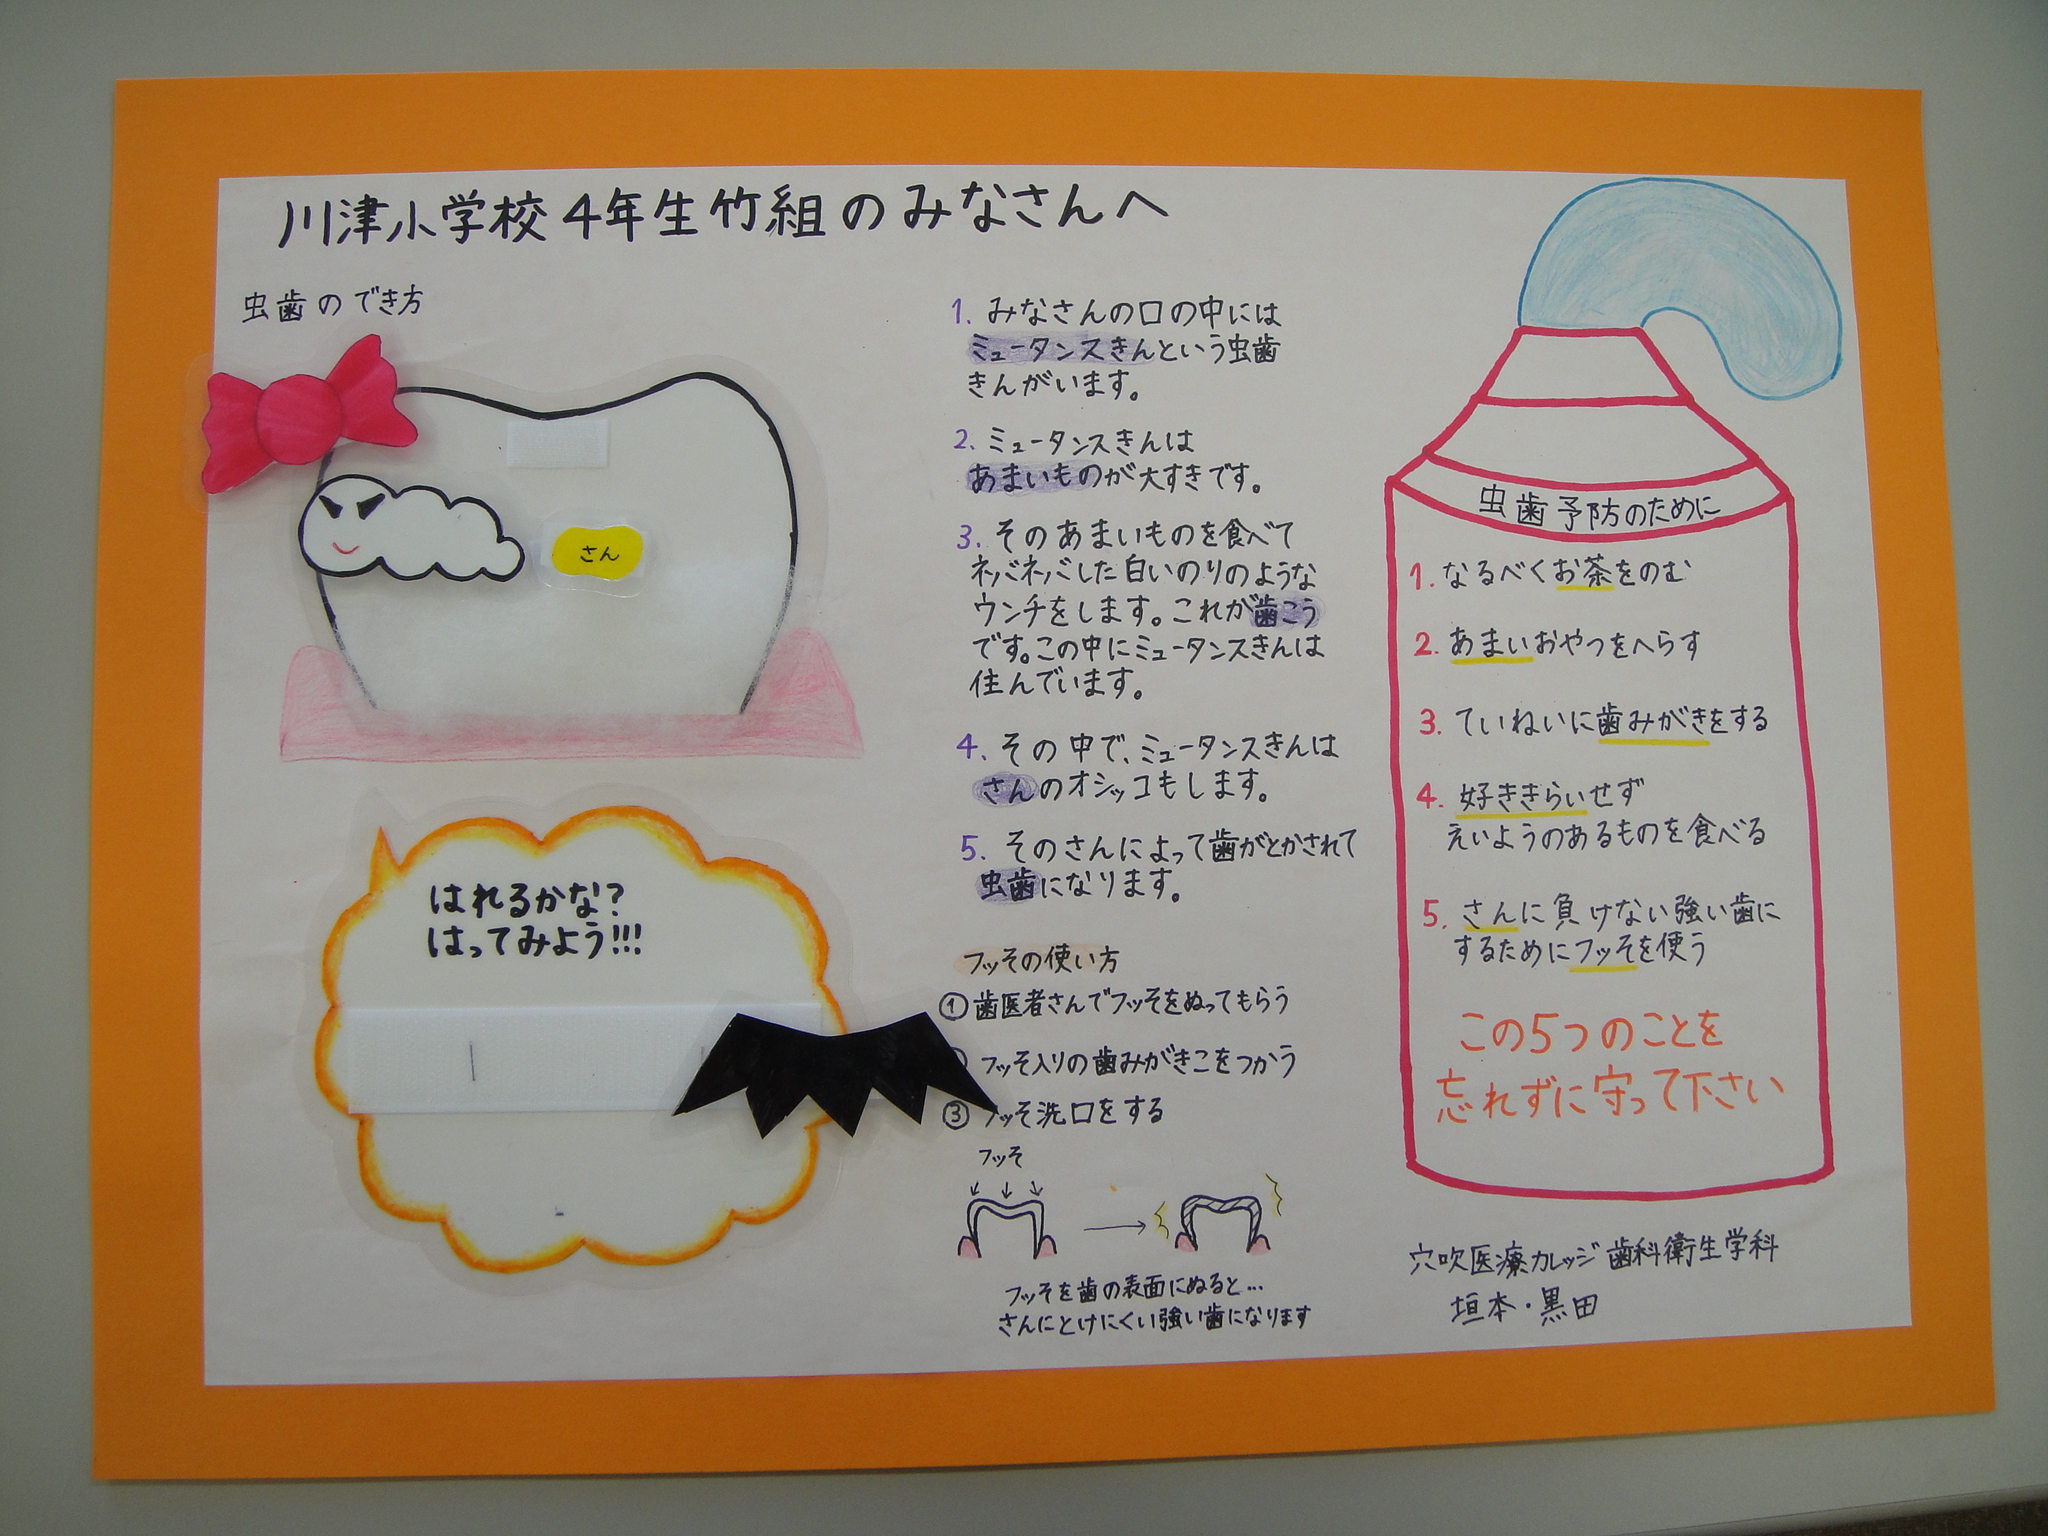 川津小学校4年生竹組のみなさんへ
虫歯のでき方
さん
はれるかな?
はってみよう!!!
1. みなさんの口の中には
ミュータンスきんという虫歯
きんがいます。
2. ミュータンスきんは
あまいものが大すきです。
3. そのあまいものを食べて
ネバネバした白いのりのような
ウンチをします。これが歯こう
です。この中にミュータンスきんは
住んでいます。
4. その中で、ミュータンスきんは
さんのオシッコもします。
5. そのさんによって歯がとかされて
虫歯になります。
フッその使い方
① 歯医者さんでフッそをぬってもらう
フッそ入りの歯みがきこをつかう
③ フッそ洗口をする
フッそ
フッそを歯の表面にぬると…
さんにとけにくい強い歯になります
虫歯予防のために
1. なるべくお茶をのむ
2. あまいおやつをへらす
3. ていねいに歯みがきをする
4. 好ききらいせず
えいようのあるものを食べる
5. さんに負けない強い歯に
するためにフッそを使う
この5つのことを
忘れずに守って下さい
穴吹医療カレッジ歯科衛生学科
垣本・黒田